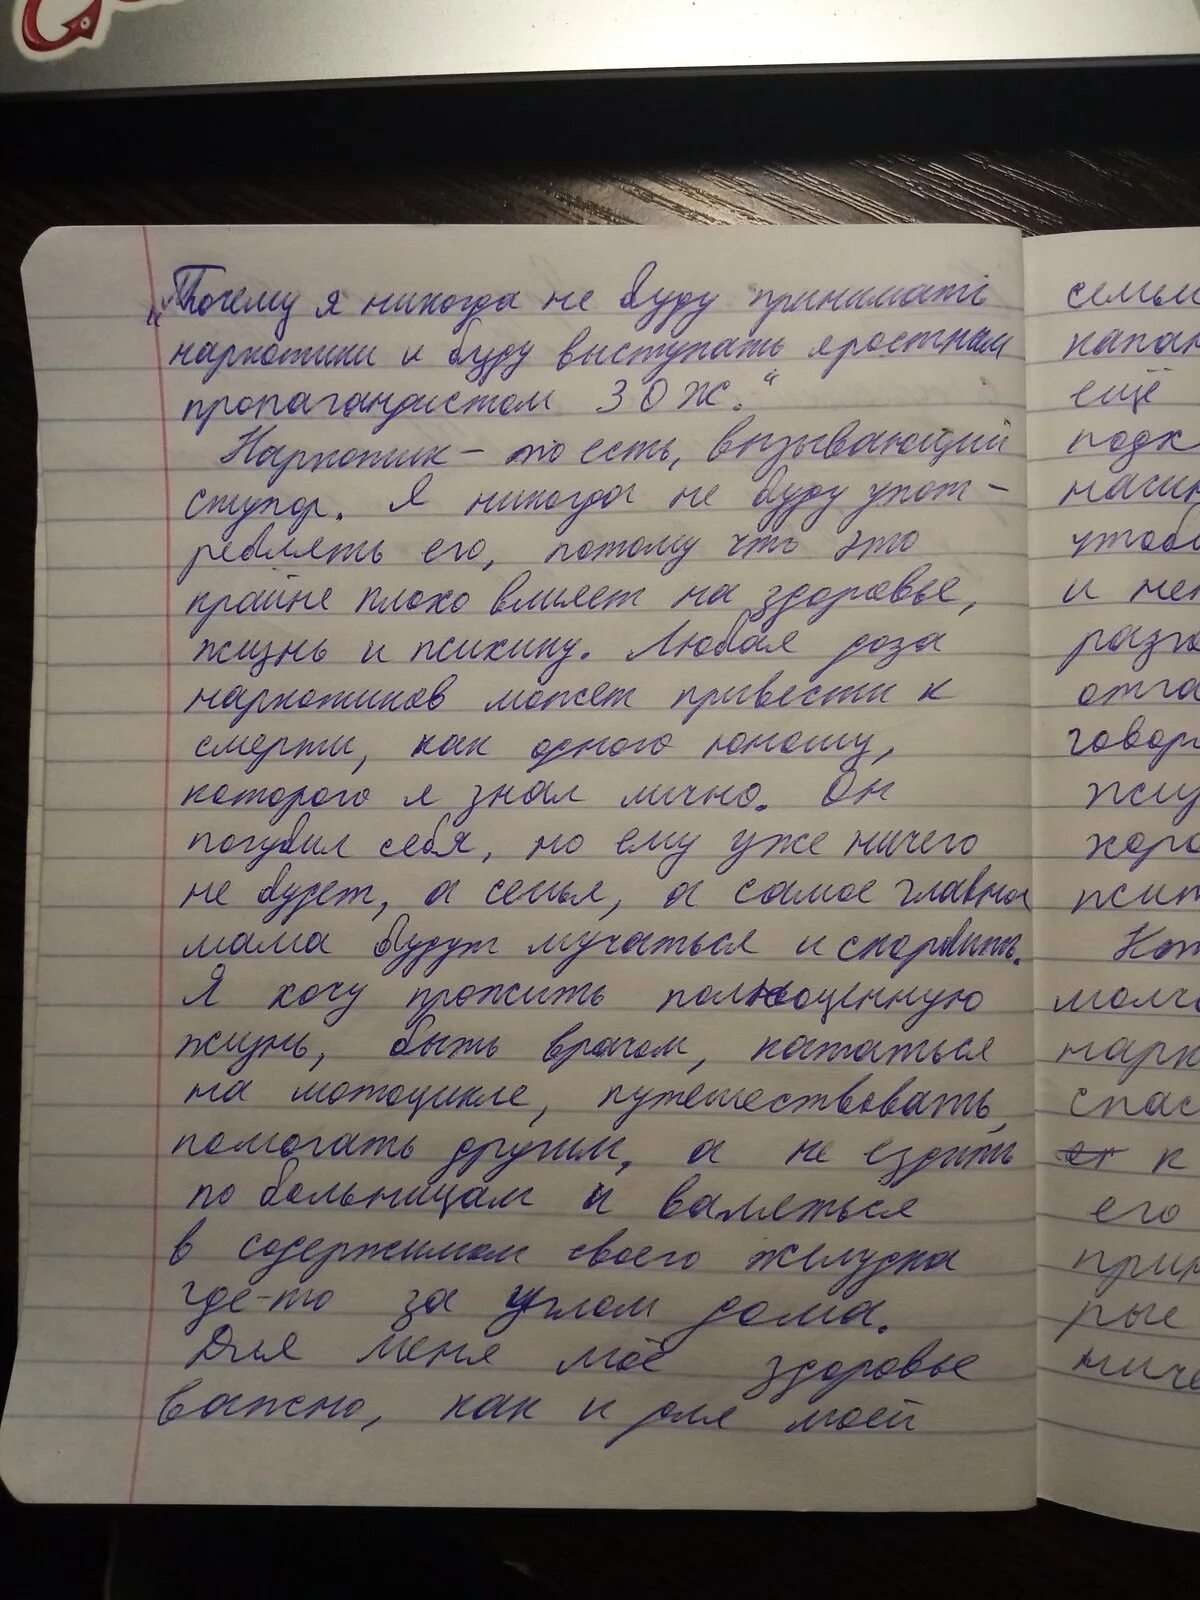 „Почему я никогда не буду принимать
наркотики и буду выступать яростным
пропагандистом ЗОЖ.“
Наркотик – то есть, вызывающий
ступор. Я никогда не буду упот-
реблять его, потому что это
крайне плохо влияет на здоровье,
жизнь и психику. Любая доза
наркотиков может привести к
смерти, как одного юношу,
которого я знал лично. Он
погубил себя, но ему уже ничего
не будет, а семья, а самое главное
мама будут мучаться и скорбить.
Я хочу прожить полноценную
жизнь, быть врачом, кататься
на мотоцикле, путешествовать,
помогать другим, а не ездить
по больницам и валяться
в содержимом своего желудка
где-то за углом дома.
Для меня моё здоровье
важно, как и для моей
семьи
ещё
и
говор
его
рые